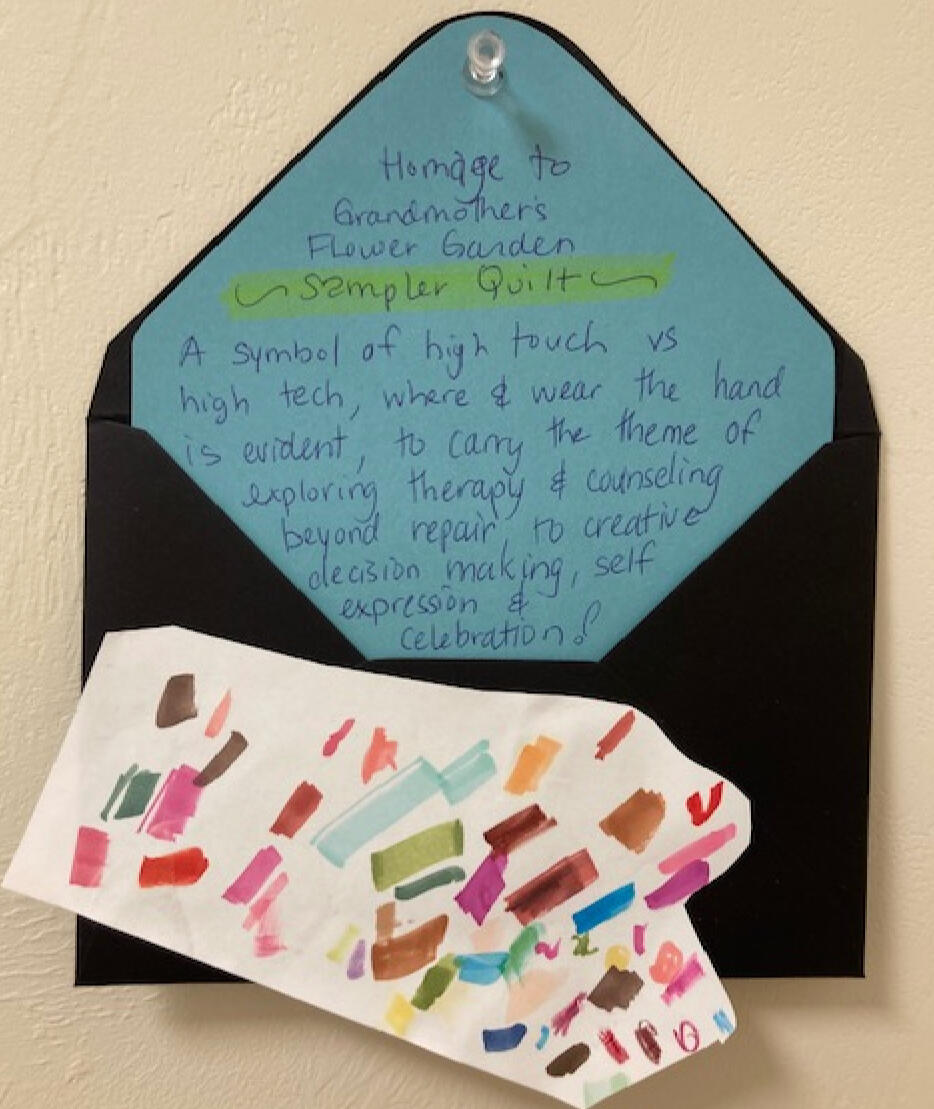 Homage to
Grandmother's
Flower Garden
~ Sampler Quilt ~
A symbol of high touch vs
high tech, where & wear the hand
is evident, to carry the theme of
exploring therapy & counseling
beyond repair, to creative
decision making, self
expression &
celebration!